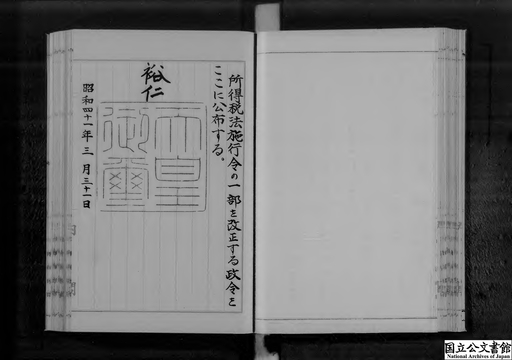 所得税法施行令の一部を改正する政令を
ここに公布する。
裕仁
天皇
御璽
昭和四十一年三月三十一日
国立公文書館
National Archives of Japan